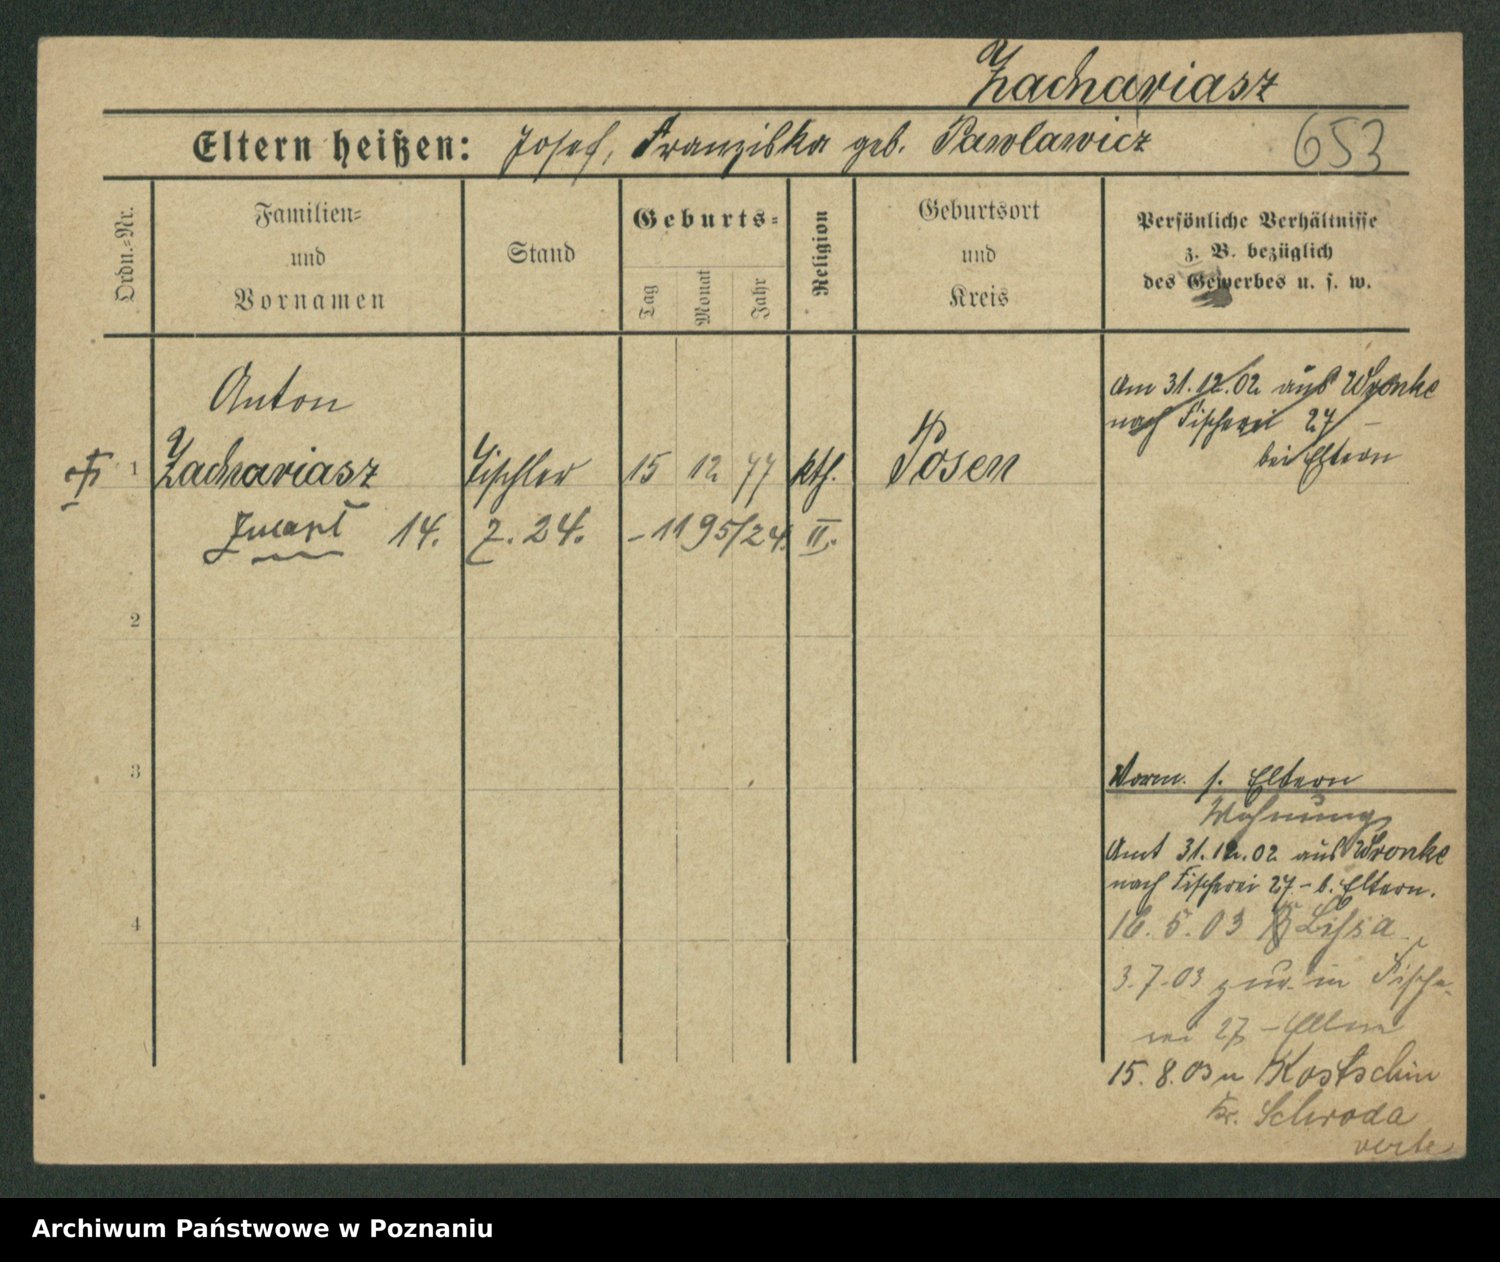 Zachariasz
Eltern heißen: Josef, Franziska geb. Pawlawicz
653
Ordn.=Nr.
Familien=
und
Vornamen
Stand
Geburts=
Tag
Monat
Jahr
Religion
Geburtsort
und
Kreis
Persönliche Verhältnisse
z. B. bezüglich
des Gewerbes u. s. w.
Anton
1 Zachariasz Tischler 15 12 77 kth. Posen
14. 7. 24. – 1195/24. II.
Am 31.12.02 aus Wronke
nach Fischerei 27 –
bei Eltern
2
3
4
Vorm. s. Eltern
Wohnung
Amt 31.12.02 aus Wronke
nach Fischerei 27 – b. Eltern.
16.5.03 Lissa
3.7.03 zur. in Fische-
rei 27 – Eltern
15.8.03 n Kostschin
Kr. Schroda
verte
Archiwum Państwowe w Poznaniu